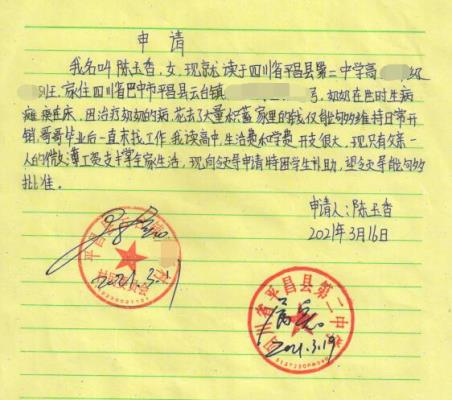 申请
我名叫陈玉香,女,现就读于四川省平昌县第二中学高 级
班.家住四川省巴中市平昌县云台镇 号,奶奶在巴时生病
瘫痪在床,因治疗奶奶的病,花去了大量积蓄家里的钱仅能够维持日常开
销,哥哥毕业后一直未找工作,我读高中,生活费和学费开支很大,现只有父亲一
人的微薄工资支撑全家生活,现向领导申请特困学生补助,望领导能够
批准.
申请人:陈玉香
2021年3月16日
平昌县
2021.3.
四川省平昌县第二中学
2021.3.19